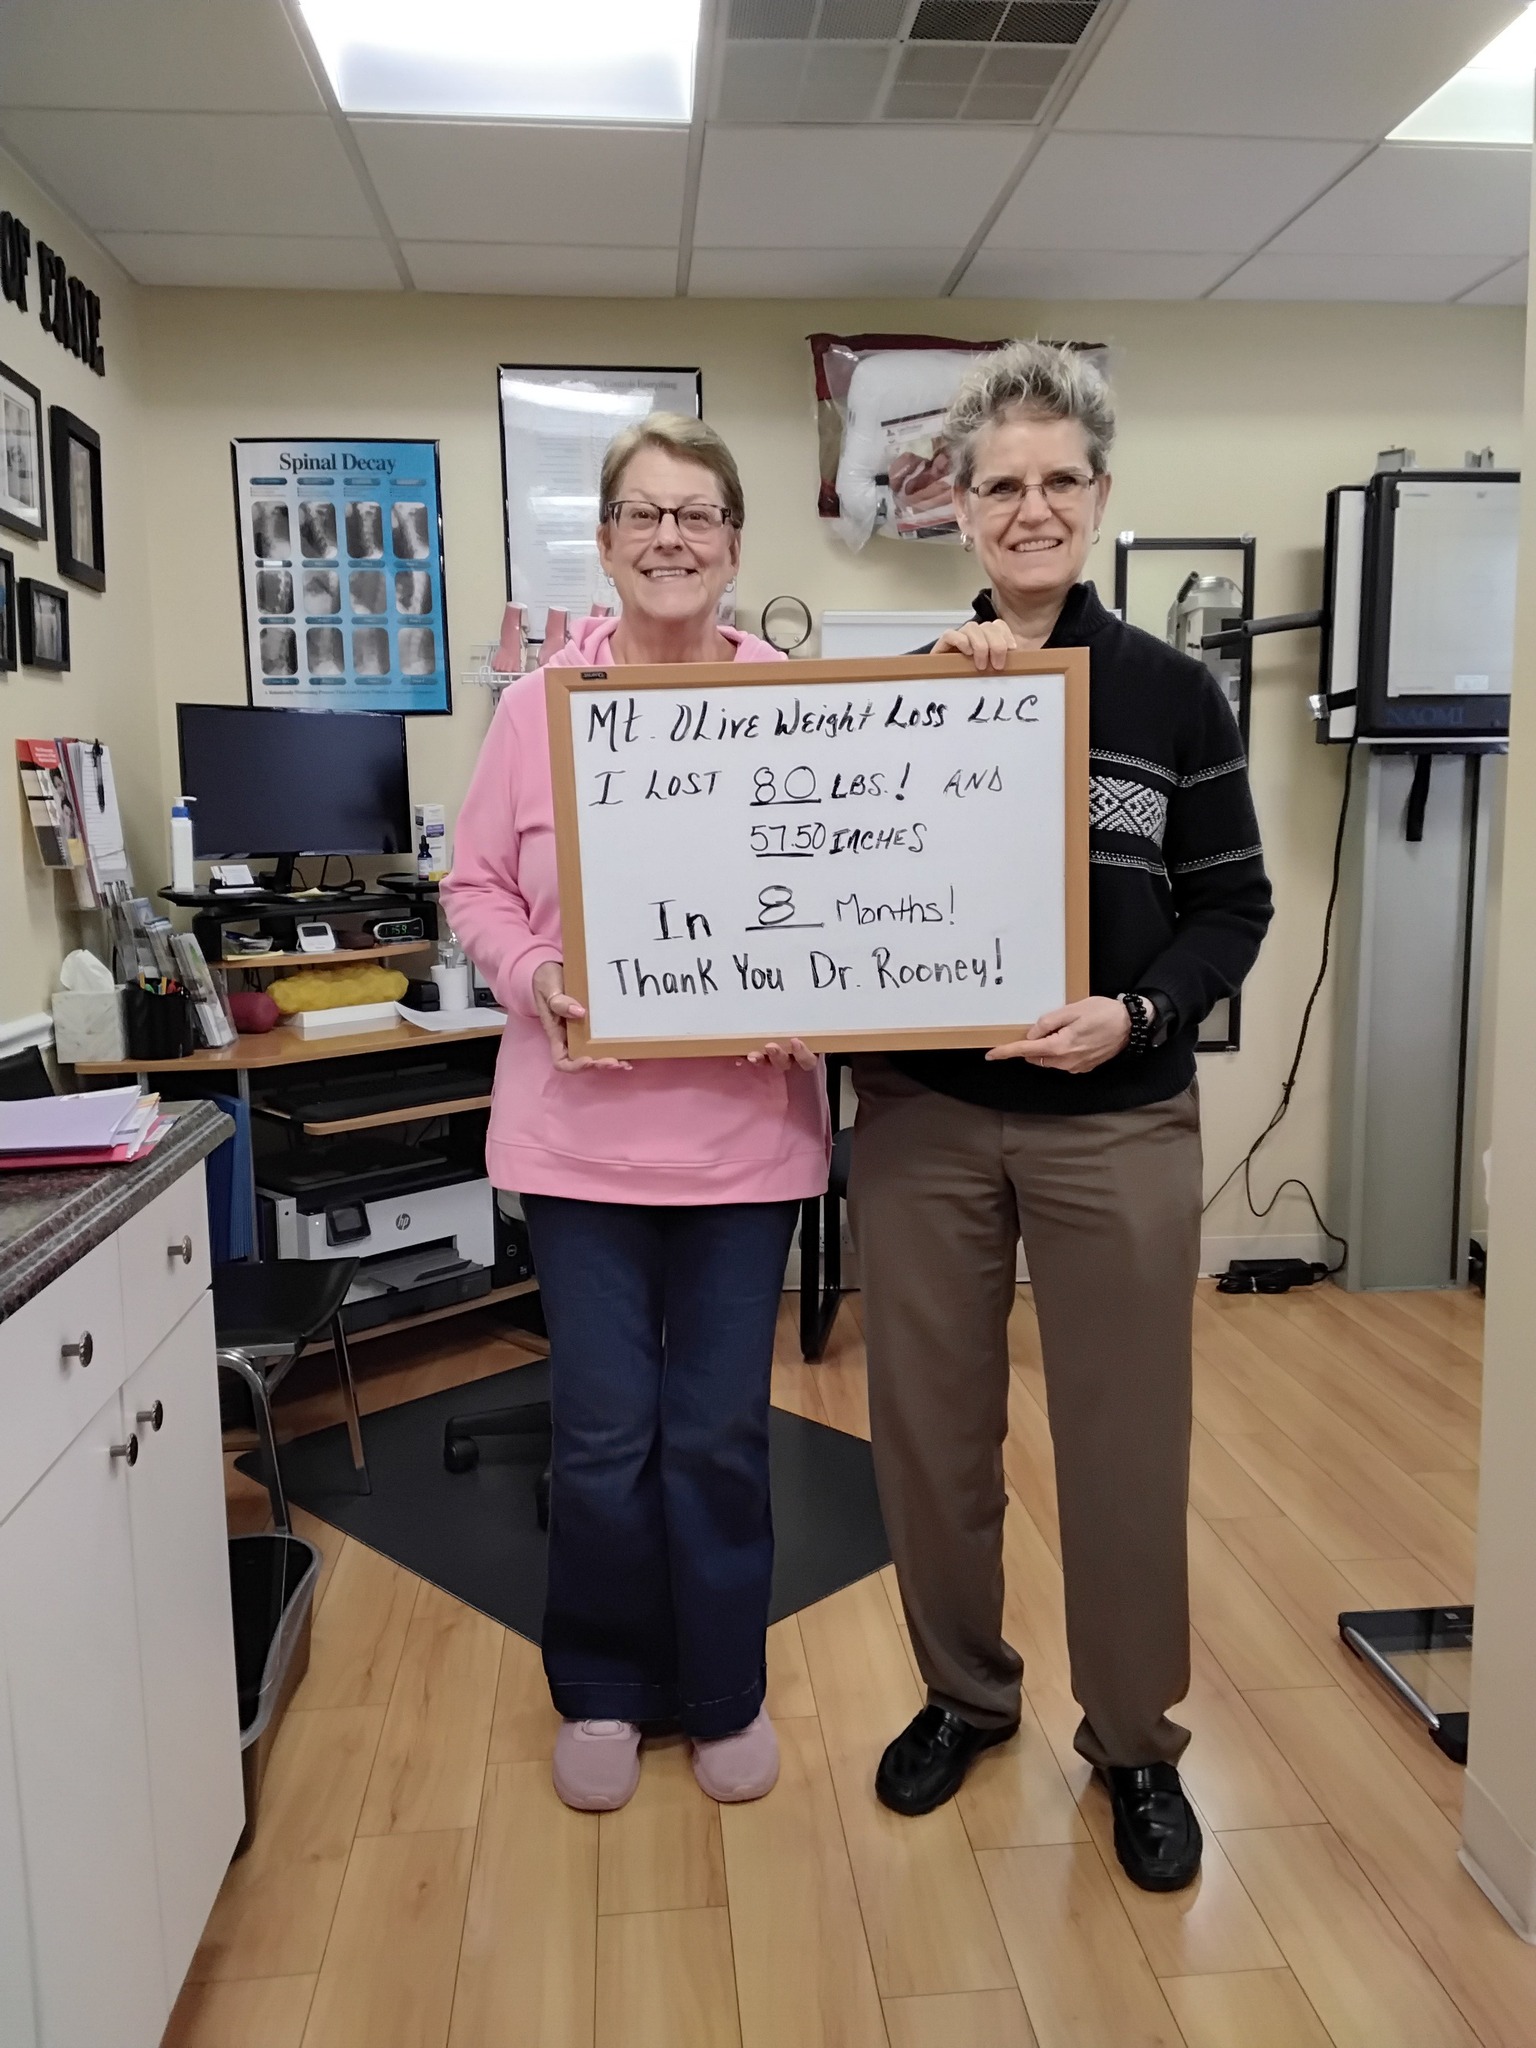 OF FAME
Spinal Decay
Mt. OLive Weight Loss LLC
I LOST 80 LBS.! AND
57.50 INCHES
In 8 Months!
Thank You Dr. Rooney!
hp
NAOMI